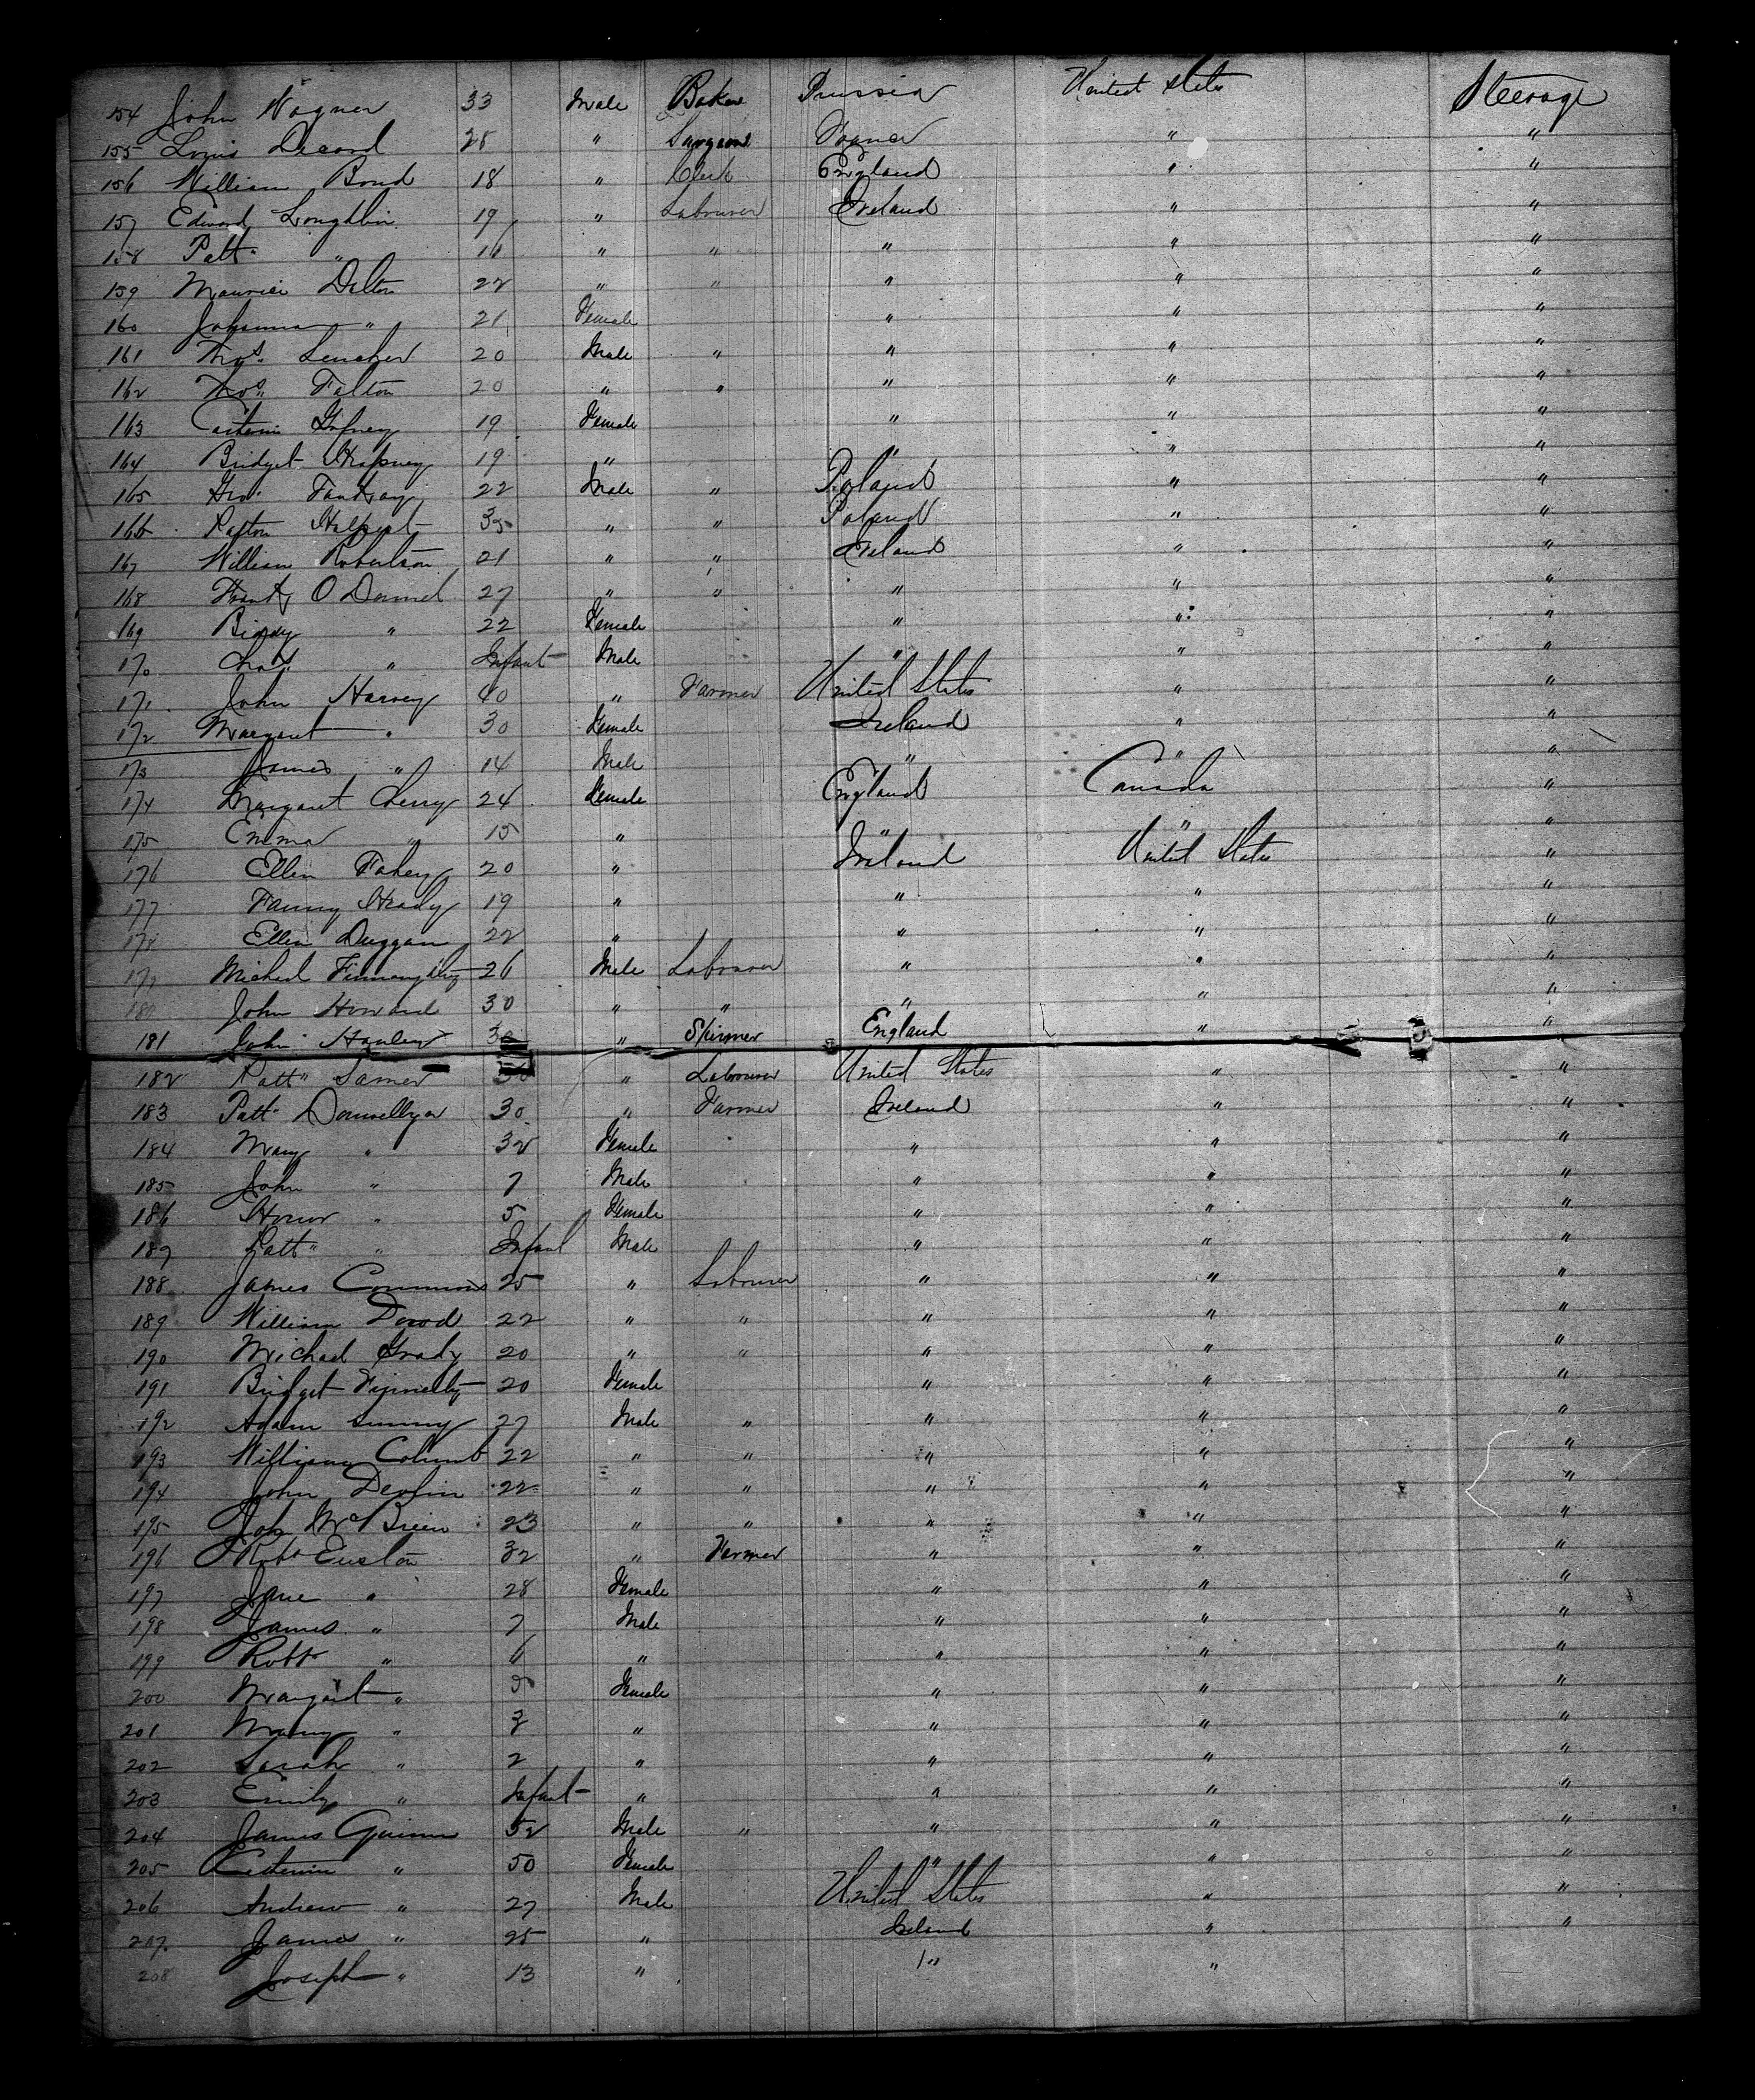 154 John Wagner 33 Male Baker Prussia United States Steerage
155 Louis 28 " Surgeon " "
156 William Bond 18 " Clerk England " "
157 Edward Loughlin 19 " Labourer Ireland " "
158 Patk " 16 " " " " "
159 Maurice Dalton 22 " " " " "
160 Johanna " 21 Female " " "
161 Thos. 20 Male " " " "
162 Thos. Falton 20 " " " " "
163 19 Female " " "
164 Bridget 19 " " " "
165 Geo. 22 Male " Poland " "
166 35 " " Poland " "
167 William Robertson 21 " " Ireland " "
168 O Donnel 27 " " " " "
169 " 22 Female " " "
170 Chas. " Infant Male " " "
171 John Harvey 40 " Farmer United States " "
172 Margaret " 30 Female Ireland " "
173 James " 14 Male " " "
174 Margaret Cherry 24 Female England Canada "
175 Emma " 15 " " " "
176 Ellen Fahey 20 " Ireland United States "
177 Fanny 19 " " " "
178 Ellen Duggan 22 " " " "
179 Michael 26 Male Labourer " " "
180 John Howard 30 " " " " "
181 John " Skinner England " "
182 Patk " Labourer United States " "
183 Patk 30 " Farmer Ireland " "
184 Mary " 32 Female " " "
185 John " 7 Male " " "
186 Honor " 5 Female " " "
187 Patk " Infant Male " " "
188 James Commons 25 " Labourer " " "
189 William Dowd 22 " " " " "
190 Michael Grady 20 " " " " "
191 Bridget 20 Female " " "
192 Adam 27 Male " " " "
193 William Columb 22 " " " " "
194 John Devlin 22 " " " " "
195 McBrien 23 " " " " "
196 Robt Euston 32 " Farmer " " "
197 Jane " 28 Female " " "
198 James " 7 Male " " "
199 Robt " 6 " " " "
200 Margaret " 5 Female " " "
201 Mary " 3 " " " "
202 Sarah " 2 " " " "
203 Emily " Infant " " " "
204 James Guinn 52 Male " " " "
205 " 50 Female " " "
206 Andrew " 27 Male United States " "
207 James " 25 " Ireland " "
208 Joseph " 13 " " "